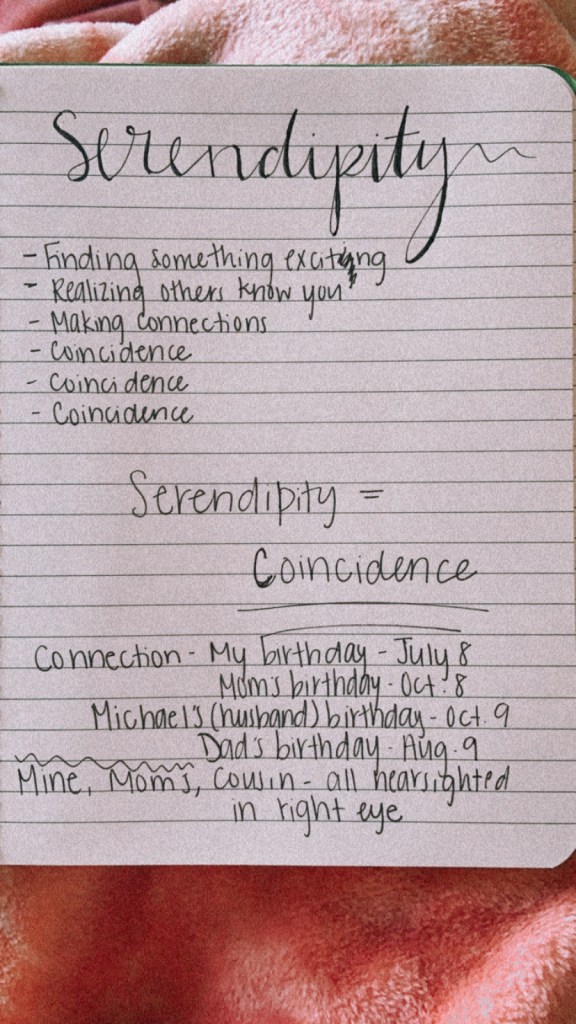 Serendipity
- Finding something exciting
- Realizing others know you
- Making connections
- Coincidence
- Coincidence
- Coincidence
Serendipity =
Coincidence
Connection - My birthday - July 8
Mom's birthday - Oct. 8
Michael's (husband) birthday - Oct. 9
Dad's birthday - Aug. 9
Mine, Mom's, Cousin - all nearsighted
in right eye